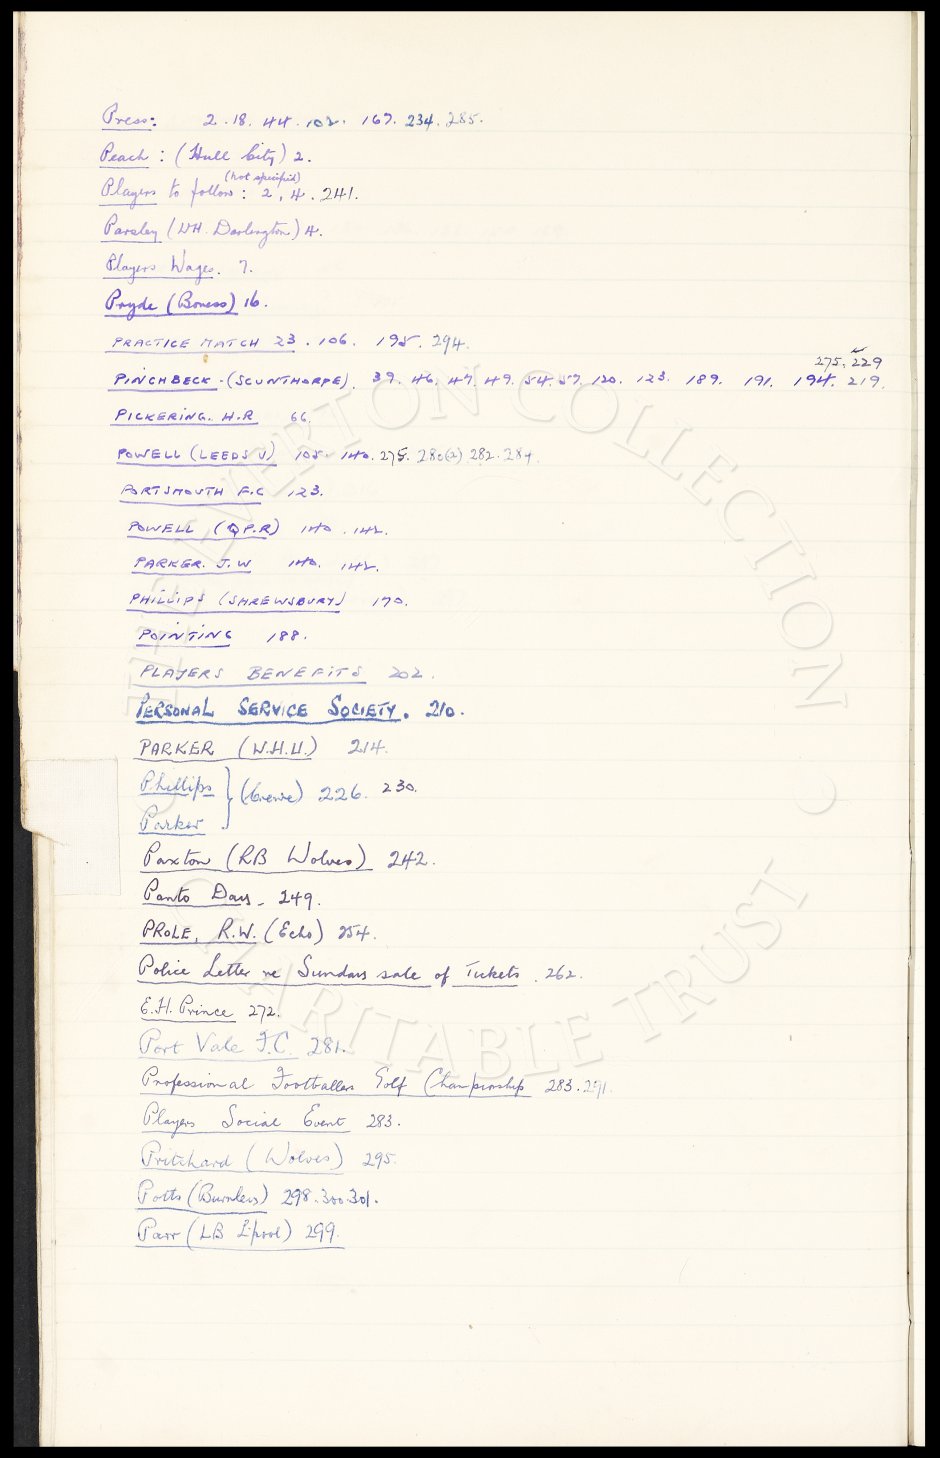 Press: 2.18.44.102. 167. 234. 285.
Peach : (Hull City) 2.
(not specified)
Players to follow : 2, 4. 241.
Parsley (WH. Darlington) 4.
Players Wages. 7.
Pryde (Boness) 16.
PRACTICE MATCH 23. 106. 195. 294.
275. 229
PINCHBECK - (SCUNTHORPE). 39. 46. 47. 49. 54. 57. 120. 123. 189. 191. 194. 219.
PICKERING. H.R 66.
POWELL (LEEDS U) 105. 140. 275. 280(2) 282. 284.
PORTSMOUTH F.C 123.
POWELL (Q.P.R) 140. 142.
PARKER. J.W 140. 142.
PHILLIPS (SHREWSBURY) 170.
POINTING 188.
PLAYERS BENEFITS 202.
PERSONAL SERVICE SOCIETY. 210.
PARKER (W.H.U.) 214.
Phillips } (Crewe) 226. 230.
Parker
Paxton (RB Wolves) 242.
Panto Days - 249.
PROLE, R.W. (Echo) 254.
Police Letter re Sundays sale of Tickets. 262.
E.H. Prince 272.
Port Vale F.C. 281.
Professional Footballers Golf Championship 283. 291.
Players Social Event 283.
Pritchard (Wolves) 295.
Potts (Burnley) 298. 300. 301.
Parr (LB L'pool) 299.
THE EVERTON COLLECTION
CHARITABLE TRUST